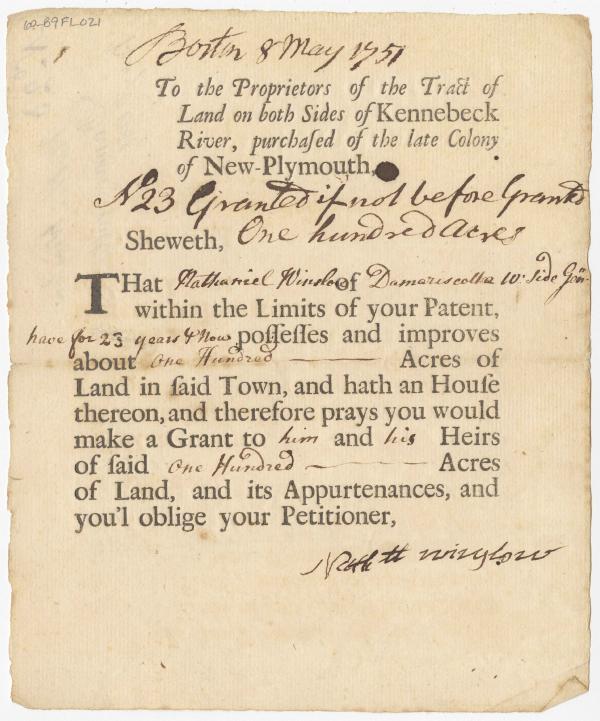 69-B9FL021
Boston 8 May 1751
To the Proprietors of the Tract of
Land on both Sides of Kennebeck
River, purchaſed of the late Colony
of New-Plymouth,
N 23 Granted if not before Granted
Sheweth, One hundred Acres
THat Nathaniel Winslow of Damariscotta W. Side
within the Limits of your Patent,
have for 23 years & Now poſſeſſes and improves
about One Hundred Acres of
Land in ſaid Town, and hath an Houſe
thereon, and therefore prays you would
make a Grant to him and his Heirs
of ſaid One Hundred Acres
of Land, and its Appurtenances, and
you'l oblige your Petitioner,
winslow